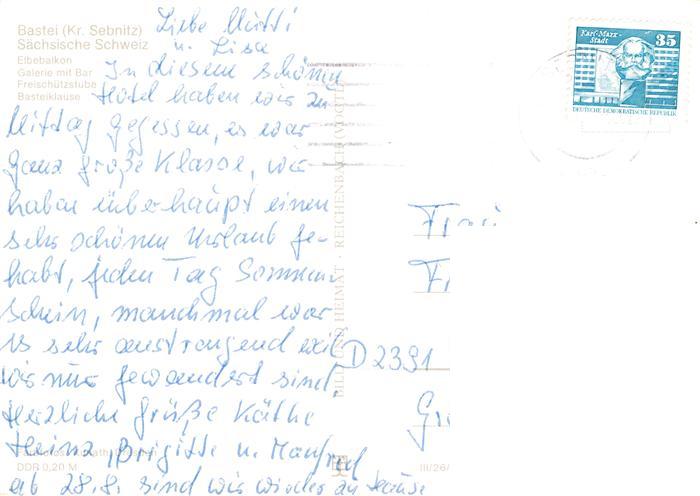 Bastei (Kr. Sebnitz)
Sächsische Schweiz
Elbebalkon
Galerie mit Bar
Freischützstube
Basteiklause
Liebe Mutti
u. Lisa
In diesem schönen
Hotel haben wir zu
Mittag gegessen, es war
ganz große Klasse, wir
haben überhaupt einen
sehr schönen Urlaub ge-
habt, jeden Tag Sonnen
schein, manchmal war
es sehr anstrengend weil
wir nur gewandert sind.
Herzliche Grüße Käthe
Heinz, Brigitte u. Manfred
ab 28.8. sind wir wieder zu Hause
DDR 0,20 M
III/26/
BILD UND HEIMAT · REICHENBACH (VOGTL)
Karl-Marx-
Stadt
35
DEUTSCHE DEMOKRATISCHE REPUBLIK
Frau
D 2391